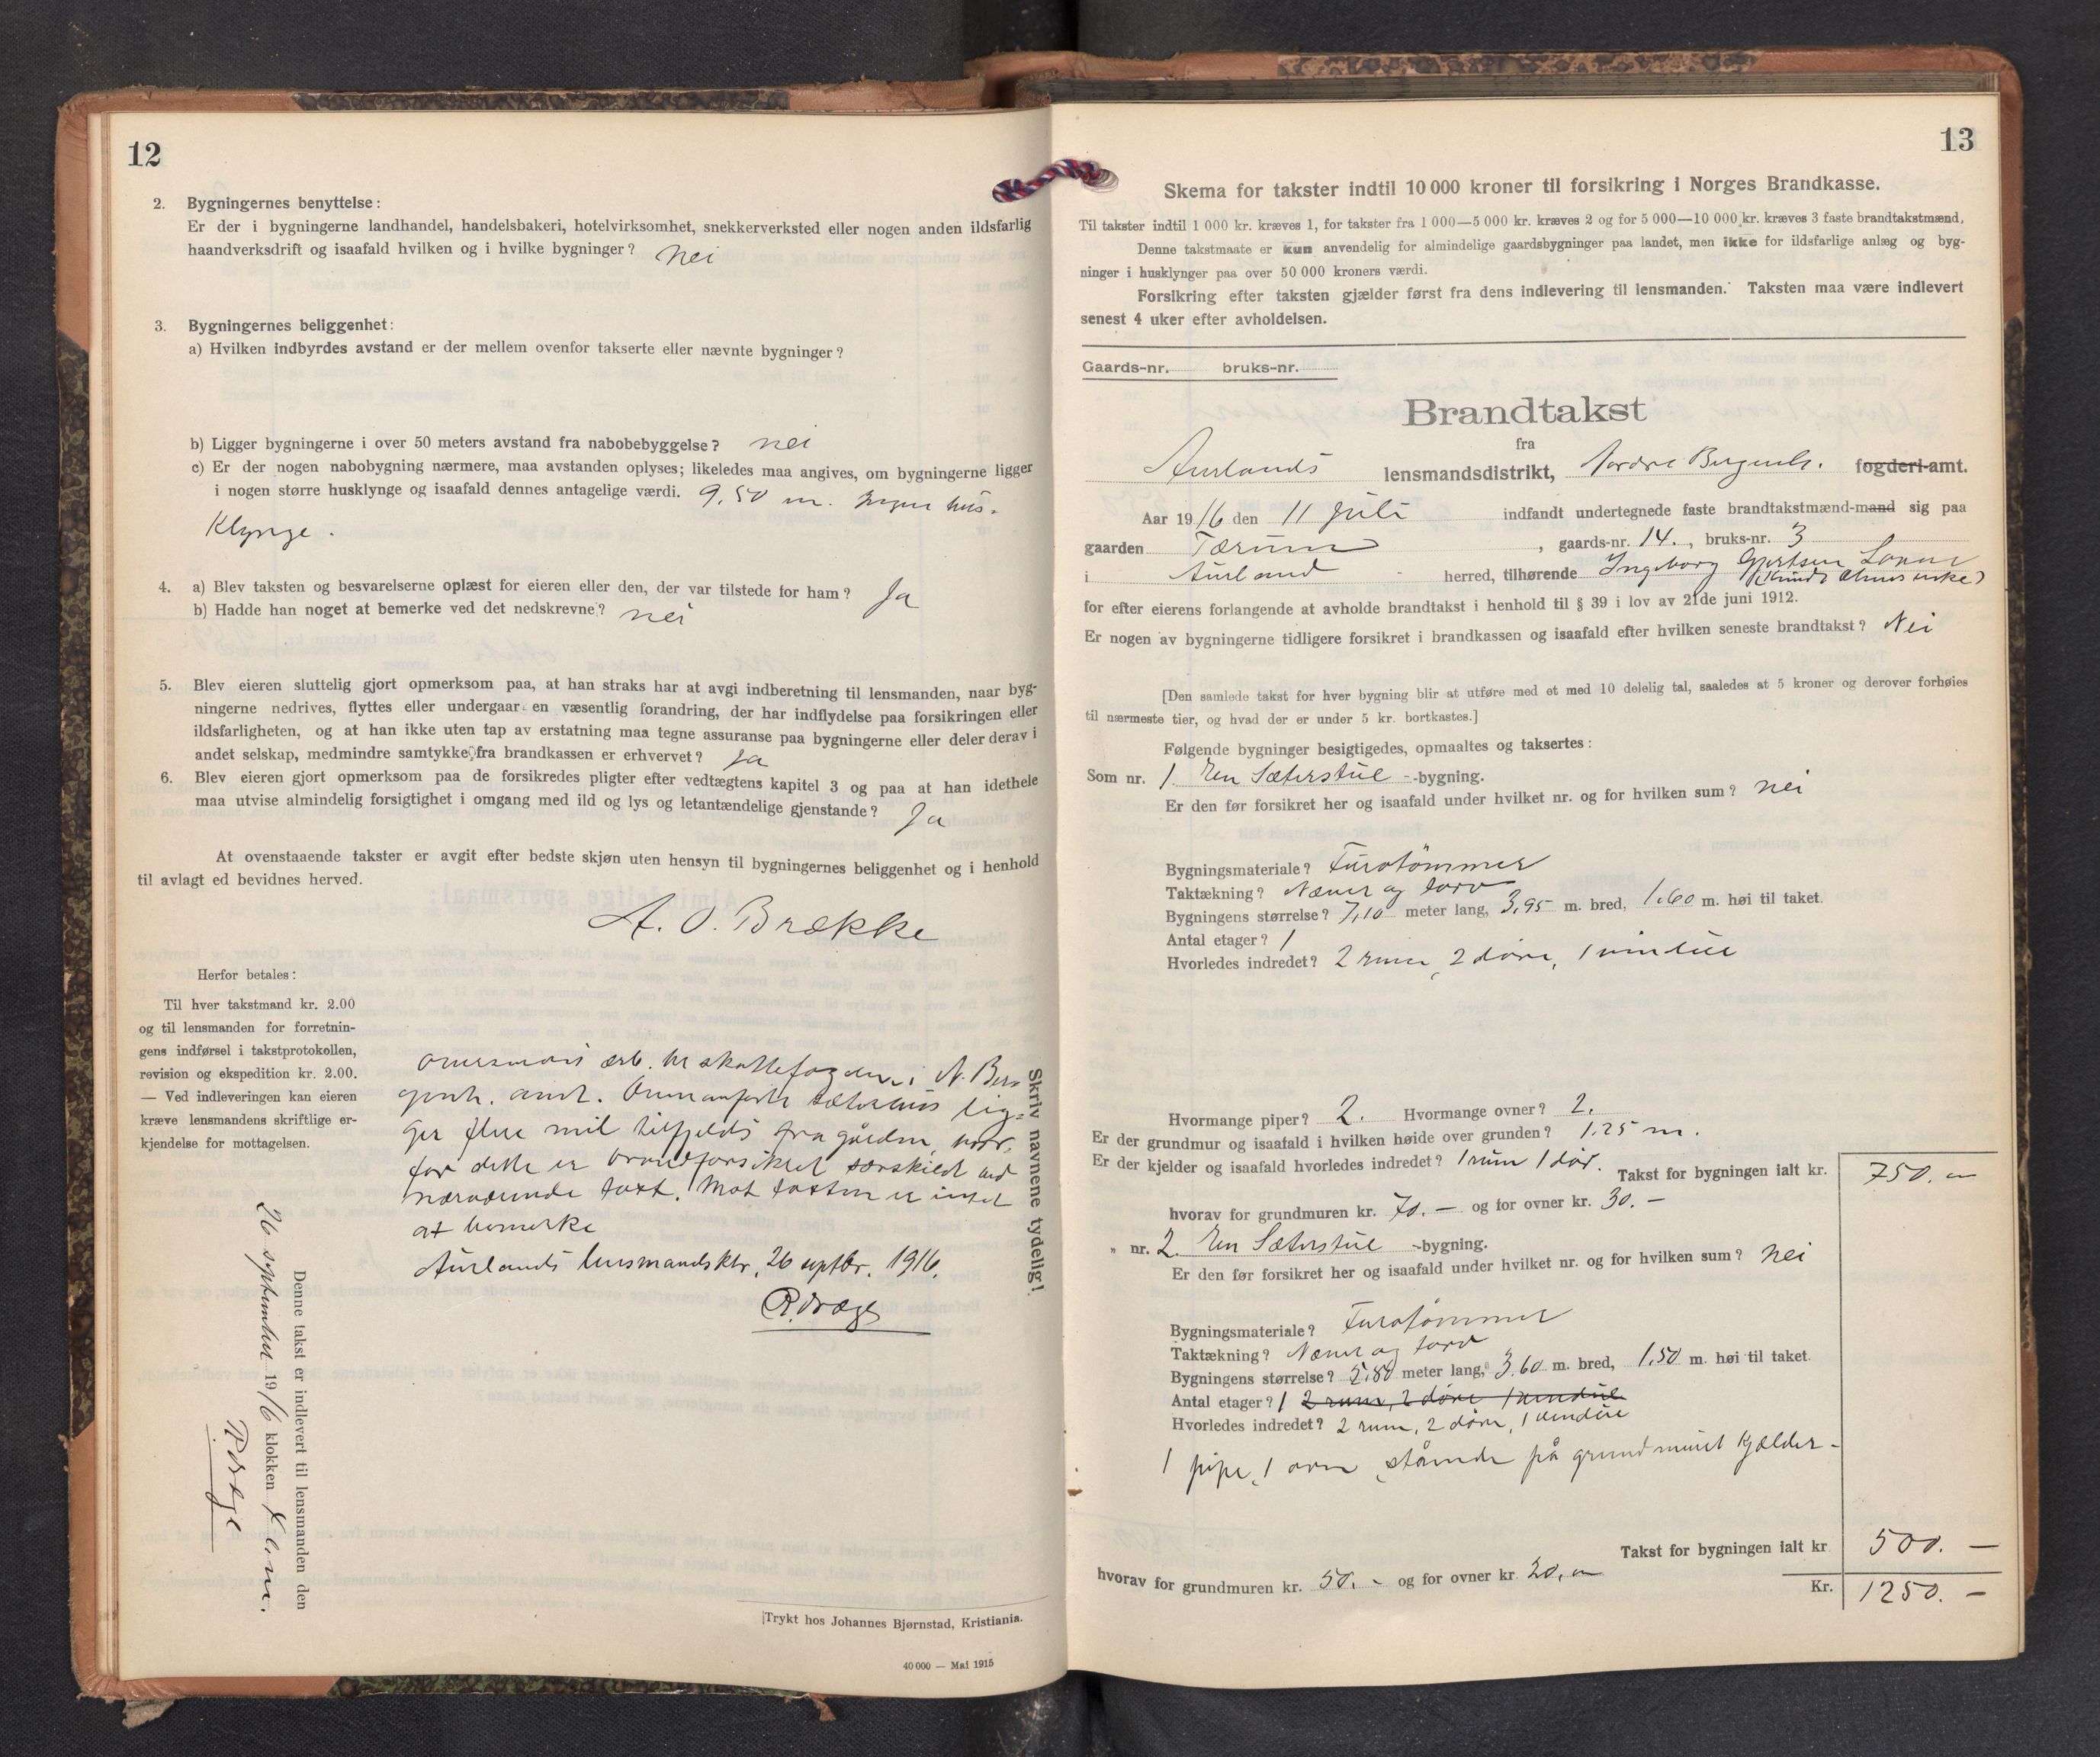 12
2. Bygningernes benyttelse:
Er der i bygningerne landhandel, handelsbakeri, hotelvirksomhet, snekkerverksted eller nogen anden ildsfarlig
haandverksdrift og isaafald hvilken og i hvilke bygninger? nei
3. Bygningernes beliggenhet:
a) Hvilken indbyrdes avstand er der mellem ovenfor takserte eller nævnte bygninger?
b) Ligger bygningerne i over 50 meters avstand fra nabobebyggelse? nei
c) Er der nogen nabobygning nærmere, maa avstanden oplyses; likeledes maa angives, om bygningerne ligger
i nogen større husklynge og isaafald dennes antagelige værdi. 9,50 m. Ingen hus-
klynge.
4. a) Blev taksten og besvarelserne oplæst for eieren eller den, der var tilstede for ham? Ja
b) Hadde han noget at bemerke ved det nedskrevne? nei
5. Blev eieren sluttelig gjort opmerksom paa, at han straks har at avgi indberetning til lensmanden, naar byg-
ningerne nedrives, flyttes eller undergaar en væsentlig forandring, der har indflydelse paa forsikringen eller
ildsfarligheten, og at han ikke uten tap av erstatning maa tegne assuranse paa bygningerne eller deler derav i
andet selskap, medmindre samtykke fra brandkassen er erhvervet? Ja
6. Blev eieren gjort opmerksom paa de forsikredes pligter efter vedtægtens kapitel 3 og paa at han idethele
maa utvise almindelig forsigtighet i omgang med ild og lys og letantændelige gjenstande? Ja
At ovenstaaende takster er avgit efter bedste skjøn uten hensyn til bygningernes beliggenhet og i henhold
til avlagt ed bevidnes herved.
A. O. Brække
Herfor betales:
Til hver takstmand kr. 2.00
og til lensmanden for forretnin-
gens indførsel i takstprotokollen,
revision og ekspedition kr. 2.00.
— Ved indleveringen kan eieren
kræve lensmandens skriftlige er-
kjendelse for mottagelsen.
Oversendes ærb. hr skattefogden i N. Ber-
genh. amt. Ovenanførte sæterhus lig-
ger flere mil tilfjelds fra gården, hvor-
for dette er brandforsikret særskilt ved
nærværende takst. Mot taksten er intet
at bemerke
Aurlands lensmandsktr. 26 septbr. 1916.
R. Dræge
Skriv navnene tydelig!
Denne takst er indlevert til lensmanden den
26 september 1916 klokken
RDræge
Trykt hos Johannes Bjørnstad, Kristiania.
40 000 — Mai 1915
13
Skema for takster indtil 10 000 kroner til forsikring i Norges Brandkasse.
Til takster indtil 1 000 kr. kræves 1, for takster fra 1 000—5 000 kr. kræves 2 og for 5 000—10 000 kr. kræves 3 faste brandtakstmænd.
Denne takstmaate er kun anvendelig for almindelige gaardsbygninger paa landet, men ikke for ildsfarlige anlæg og byg-
ninger i husklynger paa over 50 000 kroners værdi.
Forsikring efter taksten gjælder først fra dens indlevering til lensmanden. Taksten maa være indlevert
senest 4 uker efter avholdelsen.
Gaards-nr. bruks-nr.
Brandtakst
fra
Aurlands lensmandsdistrikt, Nordre Bergenh. fogderi-amt.
Aar 1916 den 11 juli indfandt undertegnede faste brandtakstmænd-mand sig paa
gaarden Tærum, gaards-nr. 14., bruks-nr. 3
i Aurland herred, tilhørende Ingeborg Gjertsen
for efter eierens forlangende at avholde brandtakst i henhold til § 39 i lov av 21de juni 1912.
Er nogen av bygningerne tidligere forsikret i brandkassen og isaafald efter hvilken seneste brandtakst? Nei
[Den samlede takst for hver bygning blir at utføre med et med 10 delelig tal, saaledes at 5 kroner og derover forhøies
til nærmeste tier, og hvad der er under 5 kr. bortkastes.]
Følgende bygninger besigtigedes, opmaaltes og taksertes:
Som nr. 1. En Sæterstue -bygning.
Er den før forsikret her og isaafald under hvilket nr. og for hvilken sum? nei
Bygningsmateriale? Furotømmer
Taktækning? Næver og torv
Bygningens størrelse? 7,10 meter lang, 3,95 m. bred, 1,60 m. høi til taket.
Antal etager? 1
Hvorledes indredet? 2 rum, 2 døre, 1 vindue
Hvormange piper? 2. Hvormange ovner? 2.
Er der grundmur og isaafald i hvilken høide over grunden? 1,25 m.
Er der kjelder og isaafald hvorledes indredet? 1 rum 1 dør. Takst for bygningen ialt kr. 750.-
hvorav for grundmuren kr. 70.- og for ovner kr. 30.-
" nr. 2. En Sæterstue -bygning.
Er den før forsikret her og isaafald under hvilket nr. og for hvilken sum? nei
Bygningsmateriale? Furotømmer
Taktækning? Næver og torv
Bygningens størrelse? 5,80 meter lang, 3,60 m. bred, 1,50 m. høi til taket.
Antal etager? 1 2 rum, 2 døre 1 vindue
Hvorledes indredet? 2 rum, 2 døre, 1 vindue
1 pipe, 1 ovn, stående på grundmuret kjælder-
Takst for bygningen ialt kr 500. —
hvorav for grundmuren kr. 50.- og for ovner kr 20.-
Kr. 1250. —